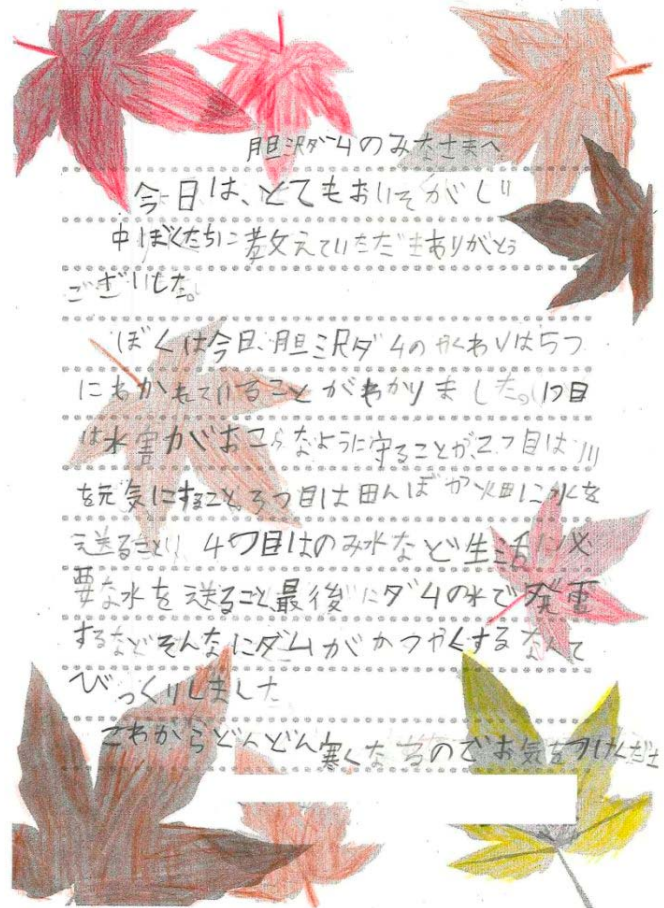 胆沢ダムのみなさまへ
今日は、とてもおいそがしい
中ぼくたちに教えていただきありがとう
ございした。
ぼくは今日、胆沢ダムのやくわりは5つ
にもわかれていることがわかりました。1つ目
は水害がおこらなように守ることが、2つ目は川
を元気にすること、3つ目は田んぼか畑に水を
送ること、4つ目はのみ水など生活に必
要な水を送ること、最後にダムの水で発電
するなどそんなにダムがかつやくするなんて
びっくりしました
これからどんどん寒くなるのでお気をつけくださ